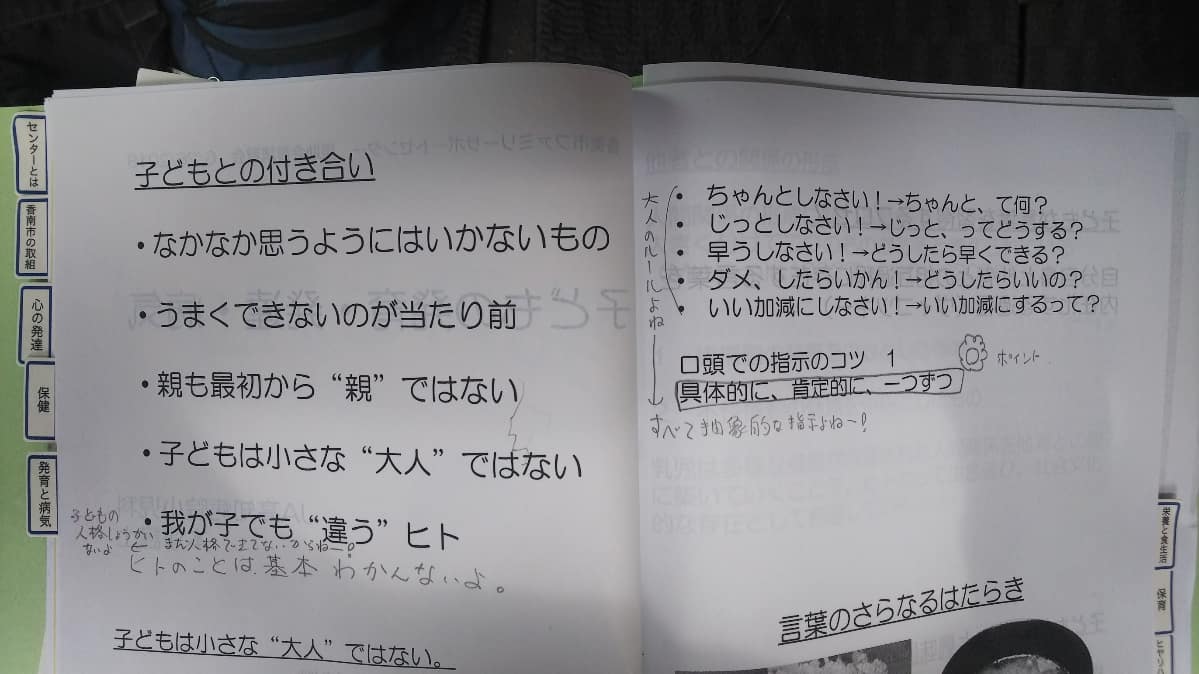 センターとは
香南市の取組
心の発達
保健
発育と病気
子どもとの付き合い
・なかなか思うようにはいかないもの
・うまくできないのが当たり前
・親も最初から“親”ではない
・子どもは小さな“大人”ではない
・我が子でも“違う”ヒト
子どもの
人格しょうがい
ないよ
← まだ人格できてないからねー!
ヒトのことは、基本 わかんないよ。
子どもは小さな“大人”ではない。
大人のルールよね
・ ちゃんとしなさい!→ちゃんと、て何?
・ じっとしなさい!→じっと、ってどうする?
・ 早うしなさい!→どうしたら早くできる?
・ ダメ、したらいかん!→どうしたらいいの?
・ いい加減にしなさい!→いい加減にするって?
口頭での指示のコツ 1
ポイント
具体的に、肯定的に、一つずつ
すべて抽象的な指示よね~!
言葉のさらなるはたらき
栄養と食生活
保育
ヒヤリハ